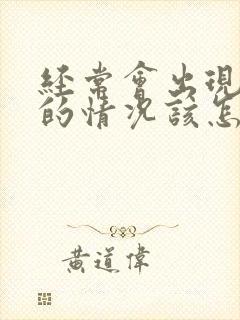 經常會出現
的情況該怎
黃道偉